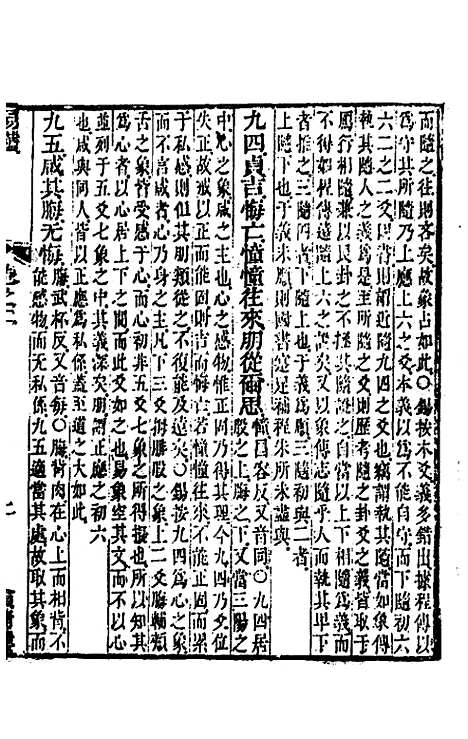 而隨之往則吝矣故象占如此〇錫按本爻義多錯出據程傳以
為守其所隨乃上應上六之爻本義以為不能自守而下隨初六
六二之二爻四書則謂近隨九四之爻也竊謂執其隨當如象傳
執其隨人之義為是至所隨之爻則歷考隨之卦爻之義皆取于
爲行相隨兼以艮卦之不拯其隨證之自當以上下相隨為義而
不得如程傳遠隨上六之說矣又以象傳志隨乎人而執其卑下
者推之三隨四者上比也于義為順三隨初與二者
上隨下也于義未順則國書寔足補程朱所未盡與
九四貞吉悔亡憧憧往來朋從爾思憧昌容反又音同〇九四居股之上脢之下又當三陽之
中心之象咸之主也心之感物惟正固乃得其理今九四乃爻位
失正故戒以正固能固則吉而悔亡若憧憧往來不能正固而累
于私感則但其朋類從之不復能及遠矣〇錫按九四為心之象
而不言咸者心乃身之主也凡下三爻拇腓股之象上二爻脢輔頰
舌之象皆受感于心而心初非五爻七象之所得擬也所以知其
為心者以心居上下之間而此爻如之也易象空其文而不以心
並列于五爻七象之中其義深矣朋謂正應之初六
也咸與同人皆以正應為私係蓋至道之大如此
九五咸其脢无悔脢武杯反又音每〇脢背肉在心上而相背不能感物而无私係九五適當其處故取其象而